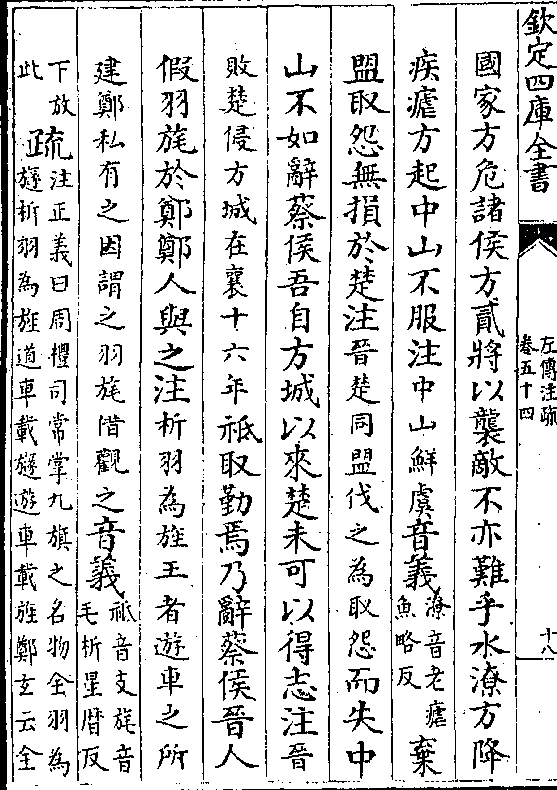 欽定四庫全書
左傳注疏
卷五十四
十八
國家方危諸侯方貳將以襲敵不亦難乎水潦方降
疾瘧方起中山不服注中山鮮虞音義潦音老瘧
魚略反
棄
盟取怨無損於楚注晉楚同盟伐之為取怨而失中
山不如辭蔡侯吾自方城以來楚未可以得志注晉
敗楚侵方城在襄十六年祗取勤焉乃辭蔡侯晉人
假羽旄於鄭鄭人與之注析羽為旌王者遊車之所
建鄭私有之因謂之羽旄借觀之音義祗音支旄音
毛析星暦反
下放
此
疏注正義曰周禮司常掌九旗之名物全羽為
旞析羽為旌道車載旞遊車載旌鄭玄云全